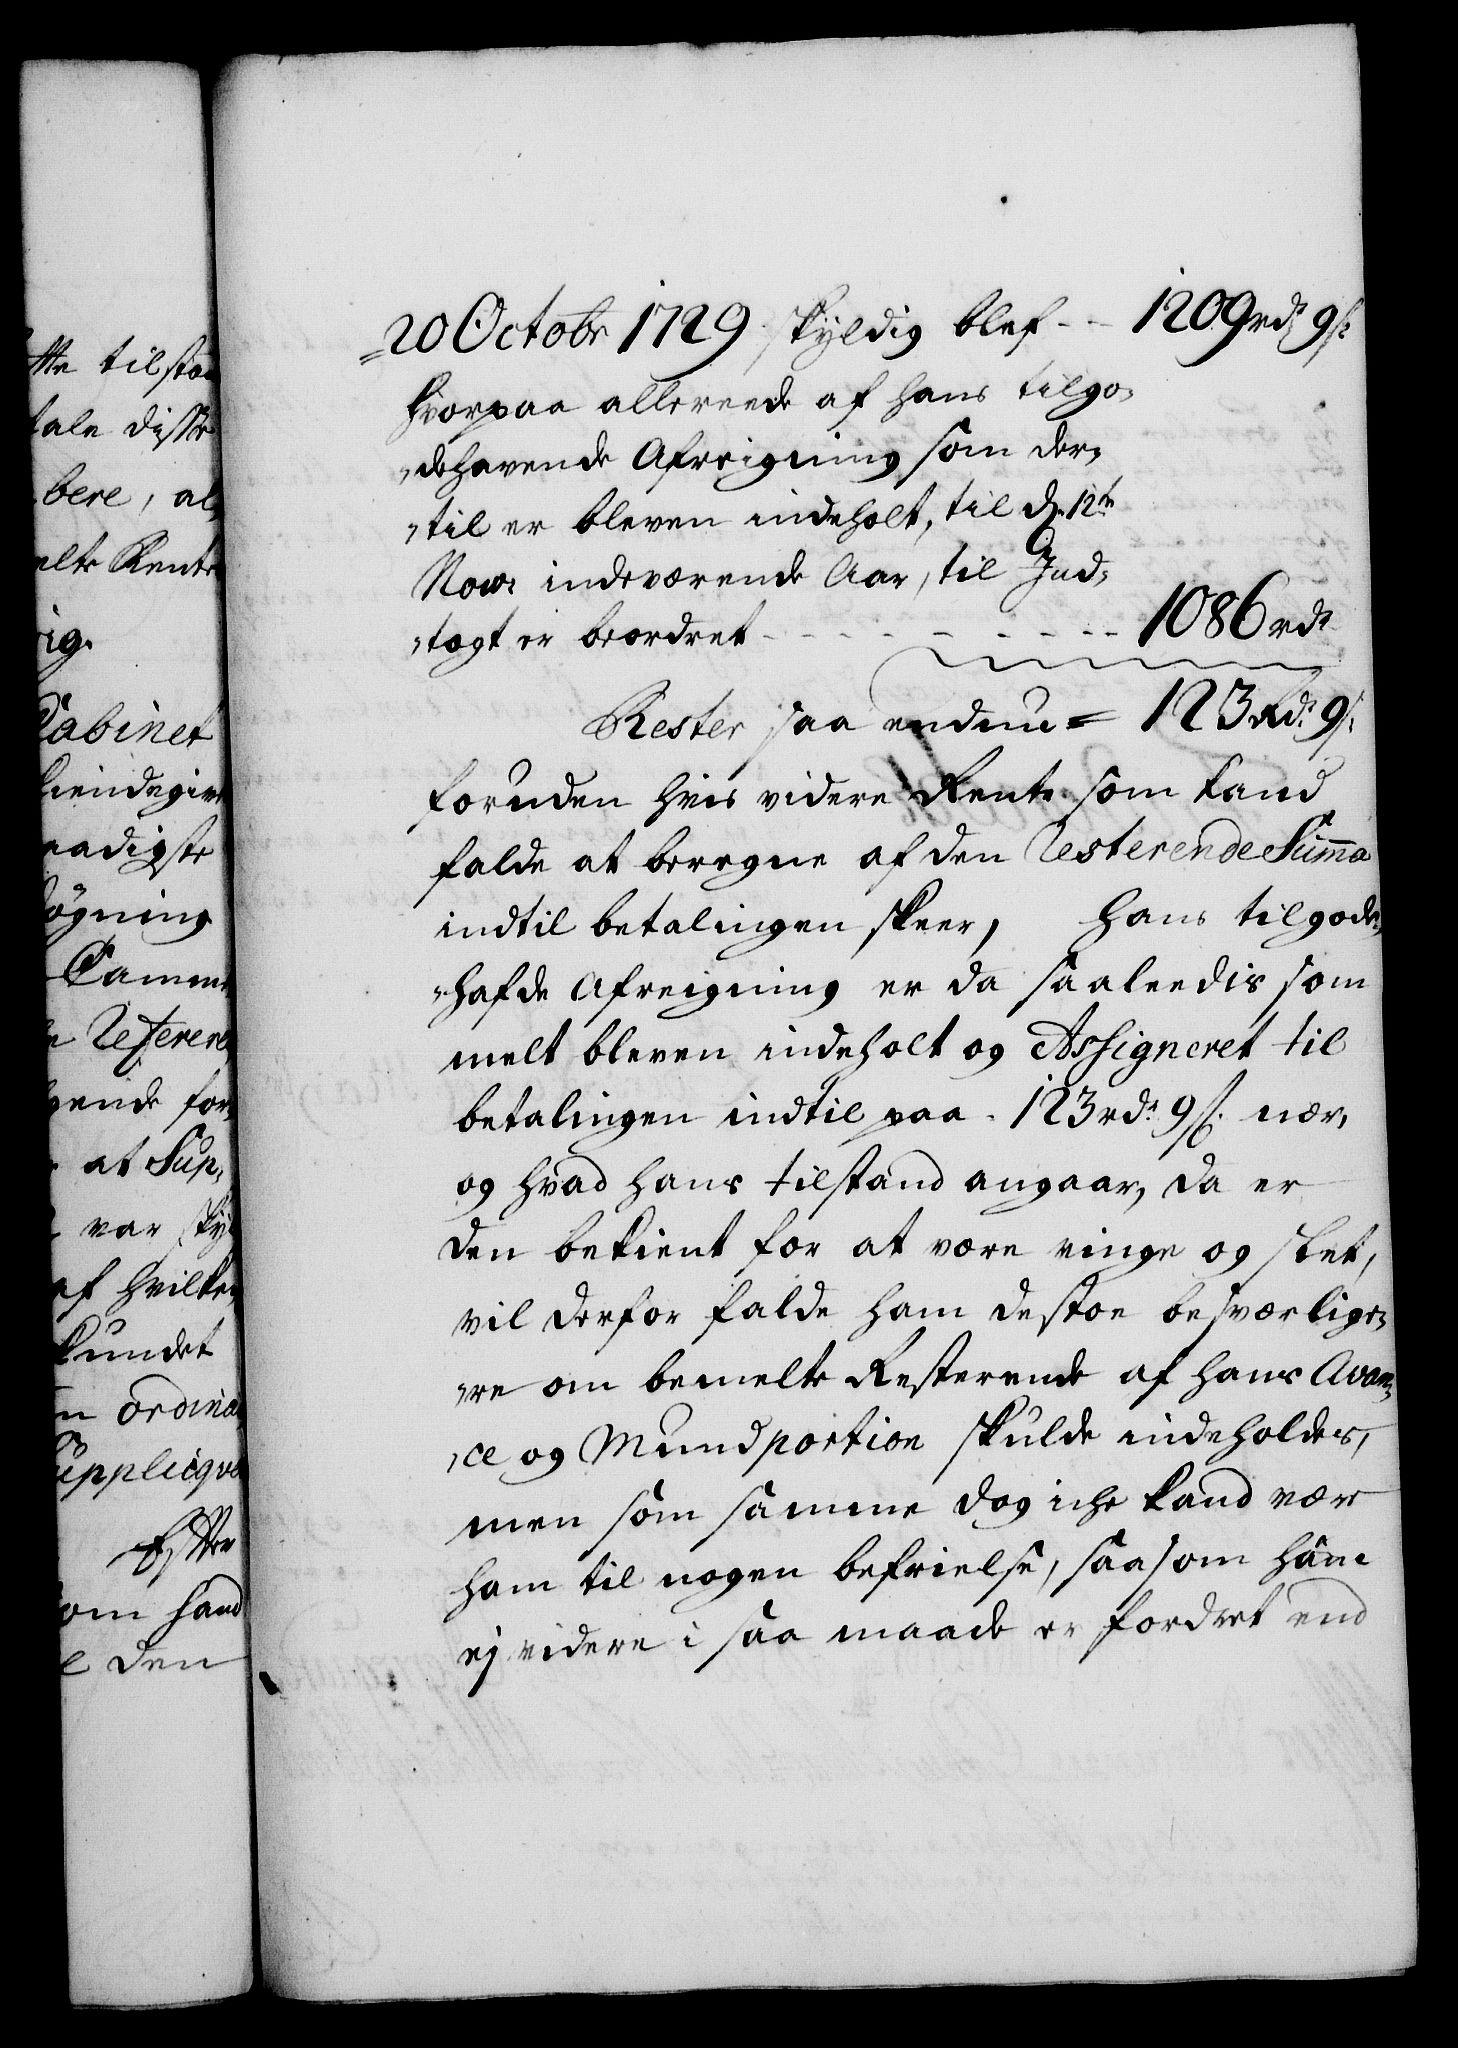 tte tilstaa
tale disse
bere, al
elte Rente
rig.
Cabinet
kiendegive
naadigste
søgning
Camme
Refereren
gende for
at Sup,
var sky
af hvilke
kundet
ordina
Suppliqve
Efter
som hand
den
20 Octobr 1729 skyldig blef - - 1209 rd: 9 ß:
hvorpaa allereede af hans tilgo,
,dehavende Afreigning som der,
,til er bleven indeholt, til d. 12te
Novr. indeværende Aar, til Ind,
,tægt er beordret - - - - - - - - - 1086 rd:
Rester saa endnu = 123 Rd: 9 ß:
foruden hvis videre Rente som kand
falde at beregne af den Resterende Summa
indtil betalingen skeer, hans tilgode,
,hafde Afreigning er da saaleedis som
melt bleven indeholt og Assigneret til
betalingen indtil paa 123 rd: 9 ß: nær,
og hvad hans tilstand angaar, da er
den bekient for at være ringe og slet,
vil derfor falde ham destoe besværlige,
,re om bemelte Resterende af hans Avan,
,ce og Mundportion skulde indeholdes,
men som samme dog iche kand være
ham til nogen befrielse, saasom ham
ej videre i saa maade er fordret end